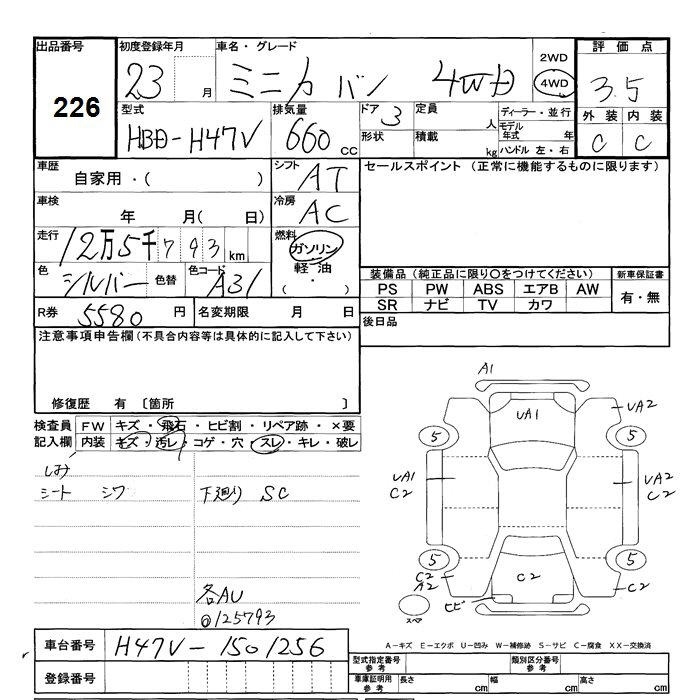 出品番号
226
初度登録年月
23 月
車名・グレード
ミニカ バン 4WD
2WD
4WD
評価点
3.5
外装 内装
C C
型式
HBD-H47V
排気量
660 cc
ドア 3
形状
定員 人
積載 kg
ディーラー・並行
モデル年式 年
ハンドル 左・右
車歴
自家用・( )
シフト AT
セールスポイント (正常に機能するものに限ります)
車検
年 月( 日)
冷房 AC
走行
12万5千793 km
燃料
ガソリン
軽油
( ・ )
色 シルバー 色替
色コード A31
装備品(純正品に限り〇をつけてください)
新車保証書
PS PW ABS エアB AW
有・無
SR ナビ TV カワ
R券 5580 円
名変期限 月 日
後日品
注意事項申告欄(不具合内容等は具体的に記入して下さい)
修復歴 有 〔箇所 〕
検査員 FW キズ・飛石・ヒビ割・リペア跡・×要
記入欄 内装 キズ・汚レ・コゲ・穴・スレ・キレ・破レ
しみ
シート シワ
下廻り SC
各AU
@125793
A1
UA1
UA2
5
5
UA1
C2
UA2
C2
5
5
C2
A2
C2
C2
ヒビ
スペア
A-キズ E-エクボ U-凹み W-補修跡 S-サビ C-腐食 XX-交換済
車台番号 H47V-1501256
登録番号
型式指定番号
参考
類別区分番号
参考
車庫証明用
参考
長さ cm
幅 cm
高さ cm